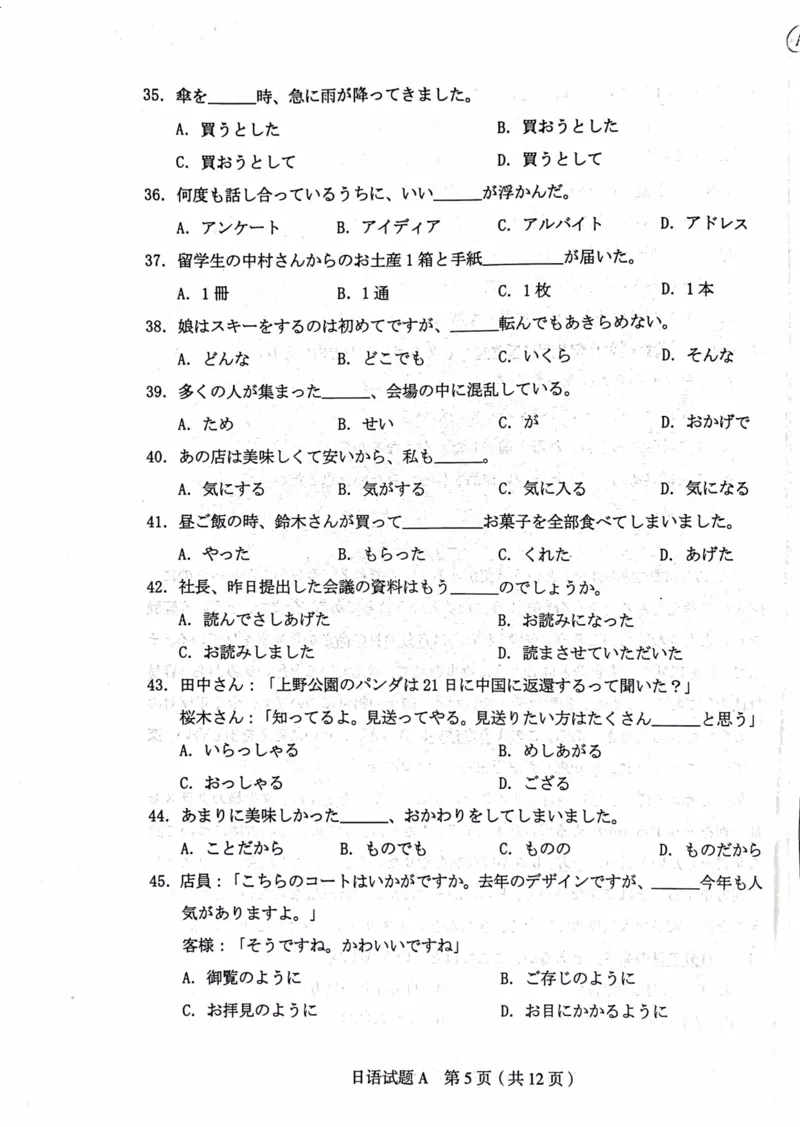 35. 傘を______時、急に雨が降ってきました。
A. 買うとした B. 買おうとした
C. 買おうとして D. 買うとして
36. 何度も話し合っているうちに、いい______が浮かんだ。
A. アンケート B. アイディア C. アルバイト D. アドレス
37. 留学生の中村さんからのお土産1箱と手紙__________が届いた。
A. 1冊 B. 1通 C. 1枚 D. 1本
38. 娘はスキーをするのは初めてですが、______転んでもあきらめない。
A. どんな B. どこでも C. いくら D. そんな
39. 多くの人が集まった______、会場の中に混乱している。
A. ため B. せい C. が D. おかげで
40. あの店は美味しくて安いから、私も______。
A. 気にする B. 気がする C. 気に入る D. 気になる
41. 昼ご飯の時、鈴木さんが買って__________お菓子を全部食べてしまいました。
A. やった B. もらった C. くれた D. あげた
42. 社長、昨日提出した会議の資料はもう______のでしょうか。
A. 読んでさしあげた B. お読みになった
C. お読みしました D. 読まさせていただいた
43. 田中さん：「上野公園のパンダは21日に中国に返還するって聞いた？」
桜木さん：「知ってるよ。見送ってやる。見送りたい方はたくさん______と思う」
A. いらっしゃる B. めしあがる
C. おっしゃる D. ござる
44. あまりに美味しかった______、おかわりをしてしまいました。
A. ことだから B. ものでも C. ものの D. ものだから
45. 店員：「こちらのコートはいかがですか。去年のデザインですが、______今年も人
気がありますよ。」
客様：「そうですね。かわいいですね」
A. 御覧のように B. ご存じのように
C. お拝見のように D. お目にかかるように
日语试题 A 第 5 页 ( 共 12 页 )